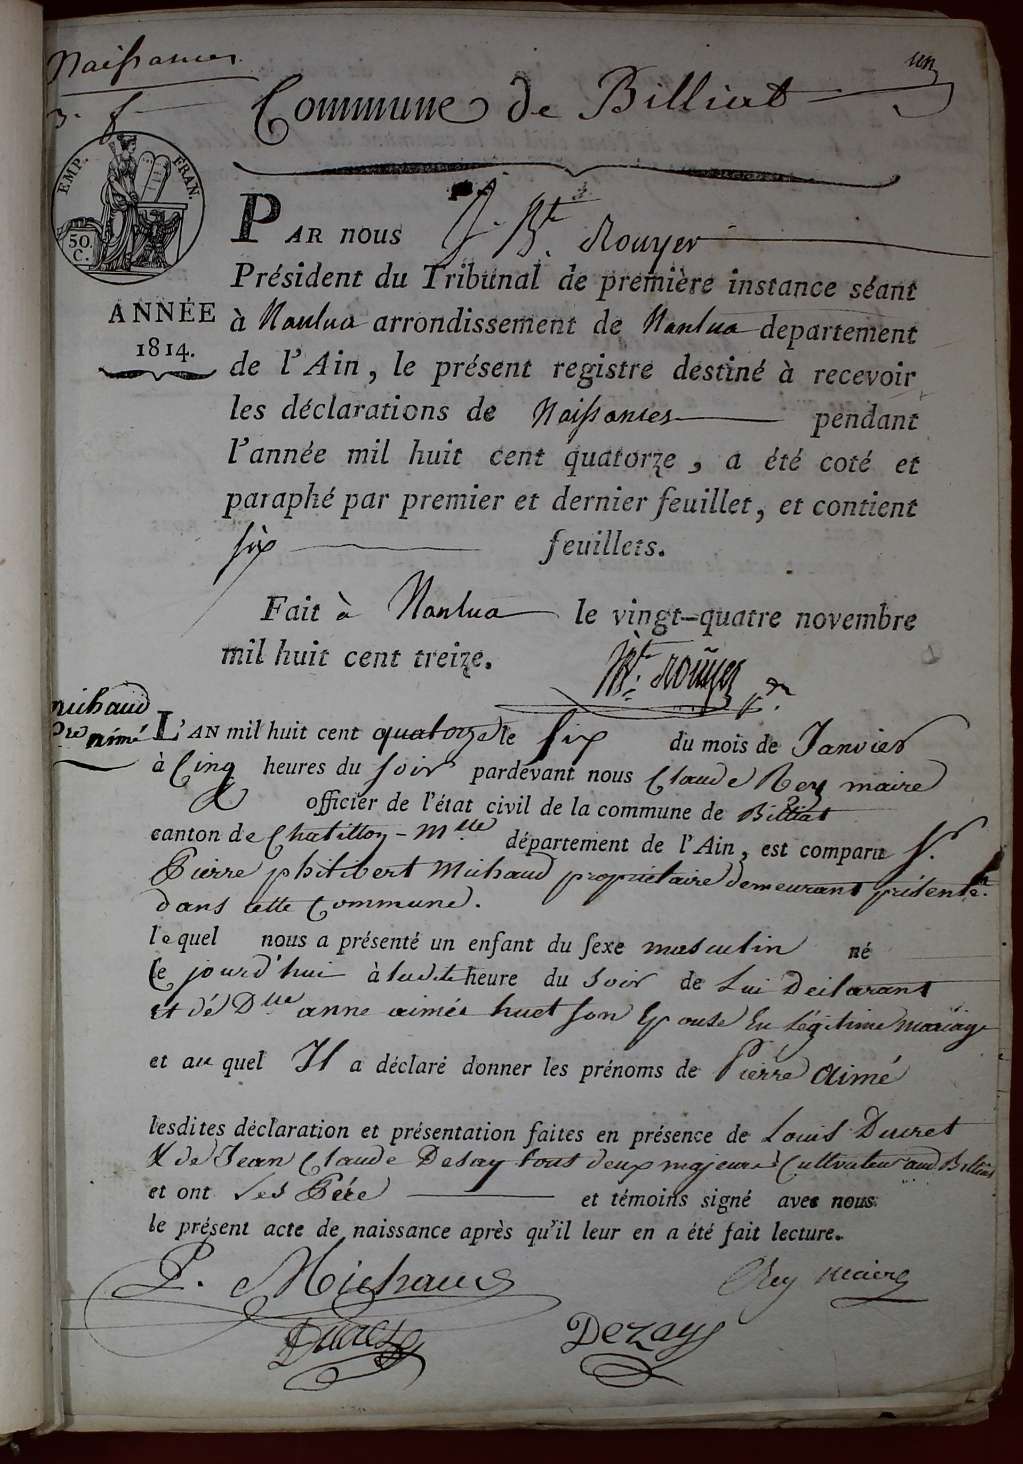 Naissances
un
3. f
Commune de Billiat
EMP. FRAN.
50.
C.
ANNÉE
1814.
PAR nous J. Bte. Rouyer
Président du Tribunal de première instance séant
à Nantua arrondissement de Nantua departement
de l'Ain, le présent registre destiné à recevoir
les déclarations de Naissances pendant
l'année mil huit cent quatorze, a été coté et
paraphé par premier et dernier feuillet, et contient
six feuillets.
Fait à Nantua le vingt-quatre novembre
mil huit cent treize.
Bte. Rouyer
michaud
Pre aimé
L'AN mil huit cent quatorze le six du mois de Janvier
à Cinq heures du soir pardevant nous Claude Rey maire
officier de l'état civil de la commune de Billiat
canton de Chatillon-Mlle département de l'Ain, est comparu Sr.
Pierre philibert Michaud propriétaire demeurant
dans cette Commune.
lequel nous a présenté un enfant du sexe masculin né
le jourd'hui à ladite heure du soir de Lui Déclarant
et dé Dlle anne aimée huet son Epouse En légitime mariage
et au quel Il a déclaré donner les prénoms de Piérre Aimé
lesdites déclaration et présentation faites en présence de Louis Ducret
& de Jean Claude Desay tous deux majeurs Cultivateurs audt Billiat
et ont Les Pére et témoins signé avec nous
le présent acte de naissance après qu'il leur en a été fait lecture.
P. Michaud Rey maire
Ducret Dezay